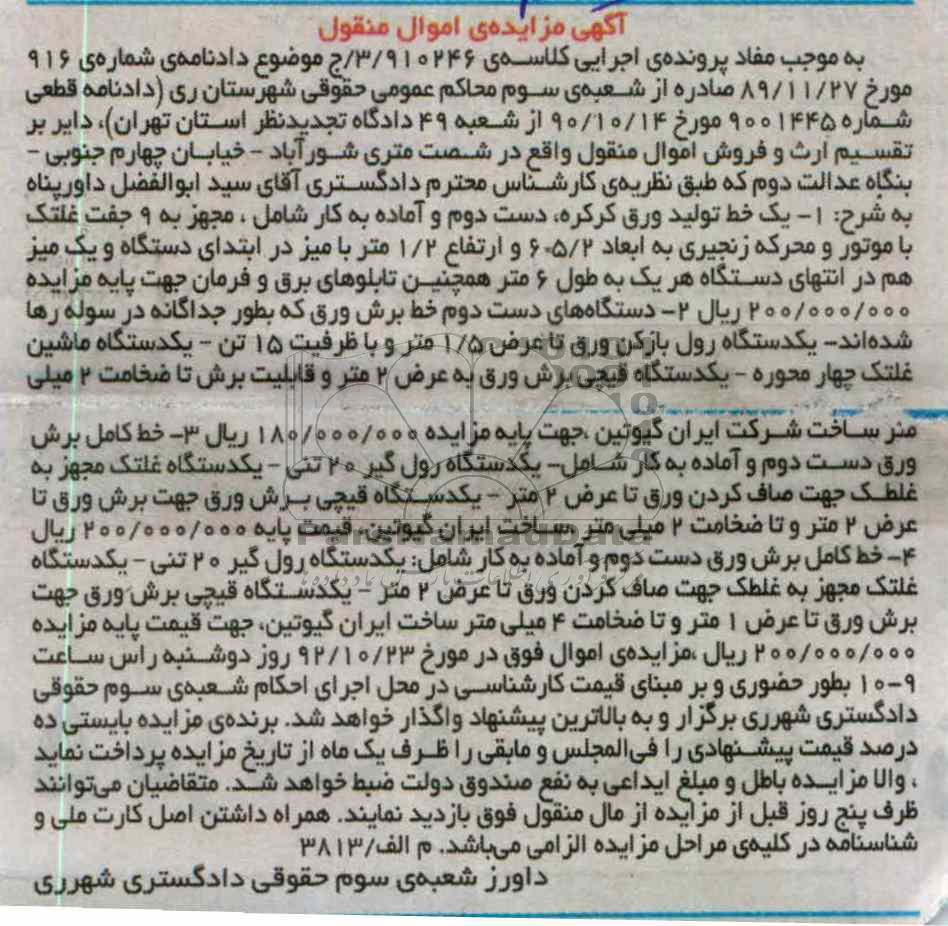 آگهی مزایده‌ی اموال منقول
به موجب مفاد پرونده‌ی اجرایی کلاسه‌ی ۳/۹۱۰۲۴۶/ج موضوع دادنامه‌ی شماره‌ی ۹۱۶
مورخ ۸۹/۱۱/۲۷ صادره از شعبه‌ی سوم محاکم عمومی حقوقی شهرستان ری (دادنامه قطعی
شماره ۹۰۰۱۴۴۵ مورخ ۹۰/۱۰/۱۴ از شعبه ۴۹ دادگاه تجدیدنظر استان تهران)، دایر بر
تقسیم ارث و فروش اموال منقول واقع در شصت متری شورآباد - خیابان چهارم جنوبی -
بنگاه عدالت دوم که طبق نظریه‌ی کارشناس محترم دادگستری آقای سید ابوالفضل داورپناه
به شرح: ۱- یک خط تولید ورق کرکره، دست دوم و آماده به کار شامل ، مجهز به ۹ جفت غلتک
با موتور و محرکه زنجیری به ابعاد و ارتفاع ۱/۲ متر با میز در ابتدای دستگاه و یک میز
هم در انتهای دستگاه هر یک به طول ۶ متر همچنین تابلوهای برق و فرمان جهت پایه مزایده
۲۰۰/۰۰۰/۰۰۰ ریال ۲- دستگاه‌های دست دوم خط برش ورق که بطور جداگانه در سوله رها
شده‌اند- یکدستگاه رول بازکن ورق تا عرض ۱/۵ متر و با ظرفیت ۱۵ تن - یکدستگاه ماشین
غلتک چهار محوره - یکدستگاه قیچی برش ورق به عرض ۲ متر و قابلیت برش تا ضخامت ۲ میلی
متر ساخت شرکت ایران گیوتین ،جهت پایه مزایده ۱۸۰/۰۰۰/۰۰۰ ریال ۳- خط کامل برش
ورق دست دوم و آماده به کار شامل- یکدستگاه رول گیر ۲۰ تنی - یکدستگاه غلتک مجهز به
غلطک جهت صاف کردن ورق تا عرض ۲ متر - یکدستگاه قیچی برش ورق جهت برش ورق تا
عرض ۲ متر و تا ضخامت ۲ میلی متر ،ساخت ایران گیوتین، قیمت پایه ۲۰۰/۰۰۰/۰۰۰ ریال
۴- خط کامل برش ورق دست دوم و آماده به کار شامل: یکدستگاه رول گیر ۲۰ تنی - یکدستگاه
غلتک مجهز به غلطک جهت صاف کردن ورق تا عرض ۲ متر - یکدستگاه قیچی برش ورق جهت
برش ورق تا عرض ۱ متر و تا ضخامت ۴ میلی متر ساخت ایران گیوتین، جهت قیمت پایه مزایده
۲۰۰/۰۰۰/۰۰۰ ریال ،مزایده‌ی اموال فوق در مورخ ۹۲/۱۰/۲۳ روز دوشنبه راس ساعت
۱۰-۹ بطور حضوری و بر مبنای قیمت کارشناسی در محل اجرای احکام شعبه‌ی سوم حقوقی
دادگستری شهرری برگزار و به بالاترین پیشنهاد واگذار خواهد شد. برنده‌ی مزایده بایستی ده
درصد قیمت پیشنهادی را فی‌المجلس و مابقی را ظرف یک ماه از تاریخ مزایده پرداخت نماید
، والا مزایده باطل و مبلغ ایداعی به نفع صندوق دولت ضبط خواهد شد. متقاضیان می‌توانند
ظرف پنج روز قبل از مزایده از مال منقول فوق بازدید نمایند. همراه داشتن اصل کارت ملی و
شناسنامه در کلیه‌ی مراحل مزایده الزامی می‌باشد. م الف/۳۸۱۳
داورز شعبه‌ی سوم حقوقی دادگستری شهرری
ParsNamadData